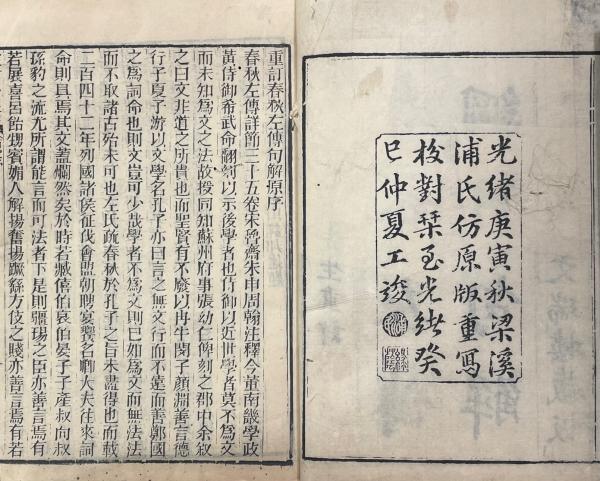 光緒庚寅秋梁溪
浦氏仿原版重寫
校對栞至光緒癸
巳仲夏工竣
重訂春秋左傳句解原序
春秋左傳詳節三十五卷宋魯齋朱申周翰注釋今董南畿學政
黃侍御希武命翻刻以示後學者也侍御以近世學者莫不為文
而未知為文之法故授同知蘇州府事張幼仁俾刻之郡中余叙
之曰文非道之所貴也而聖賢有不廢以冉牛閔子顏淵善言德
行子夏子游以文學名孔子亦曰言之無文行而不遠而善鄭國
之為詞命也則文豈可少哉學者不為文則已如為文而無法法
而不取諸古殆未可也左氏疏春秋於孔子之旨未盡得也而載
二百四十二年列國諸侯征伐會盟朝聘宴饗名卿大夫往來詞
命則具焉其文蓋爛然矣於時若臧僖伯哀伯晏子子產叔向叔
孫豹之流尤所謂能言而可法者下是則疆埸之臣亦善言焉有
若展喜呂飴甥賓媚人解揚奮揚蹶繇方伎之賤亦善言焉有若